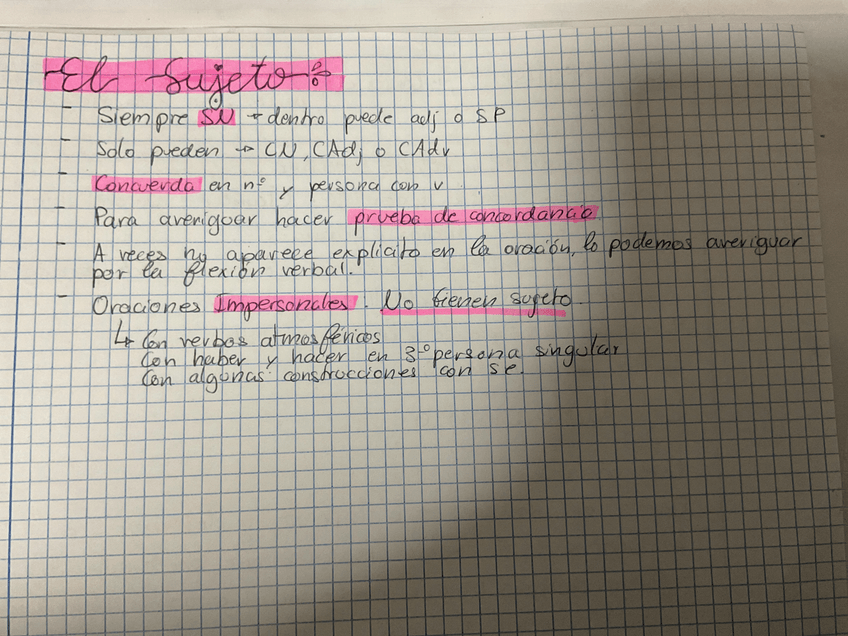 El Sujeto:
- Siempre SN → dentro puede adj o SP
- Solo pueden → CN, CAdj o CAdv
- Concuerda en nº y persona con v.
- Para averiguar hacer prueba de concordancia.
- A veces no aparece explícito en la oración, lo podemos averiguar
por la flexión verbal.
- Oraciones Impersonales. No tienen sujeto.
↳ Con verbos atmosféricos
Con haber y hacer en 3º persona singular
Con algunas construcciones con se.